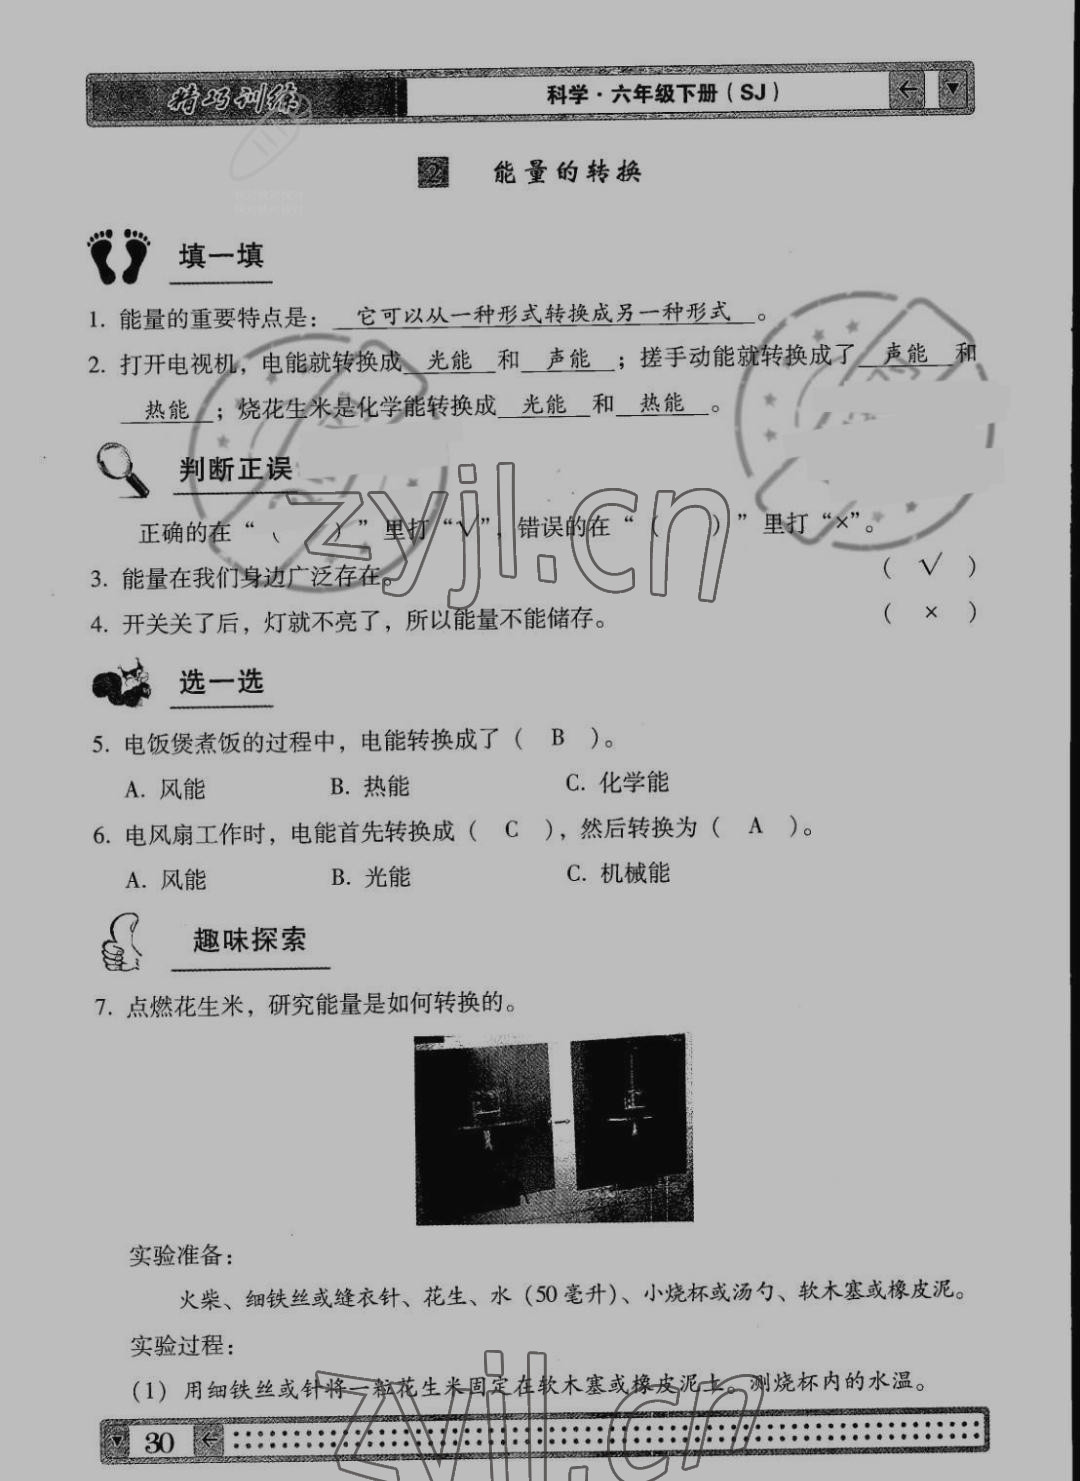 精巧训练
科学·六年级下册（SJ）
2 能量的转换
填一填
1. 能量的重要特点是：它可以从一种形式转换成另一种形式。
2. 打开电视机，电能就转换成 光能 和 声能 ；搓手动能就转换成了 声能 和
热能 ；烧花生米是化学能转换成 光能 和 热能 。
判断正误
正确的在“（ ）”里打“√”，错误的在“（ ）”里打“×”。
3. 能量在我们身边广泛存在。 （ √ ）
4. 开关关了后，灯就不亮了，所以能量不能储存。 （ × ）
选一选
5. 电饭煲煮饭的过程中，电能转换成了（ B ）。
A. 风能 B. 热能 C. 化学能
6. 电风扇工作时，电能首先转换成（ C ），然后转换为（ A ）。
A. 风能 B. 光能 C. 机械能
趣味探索
7. 点燃花生米，研究能量是如何转换的。
实验准备：
火柴、细铁丝或缝衣针、花生、水（50毫升）、小烧杯或汤勺、软木塞或橡皮泥。
实验过程：
（1）用细铁丝或针将一粒花生米固定在软木塞或橡皮泥上。测烧杯内的水温。
30
zyjl.cn
zyjl.cn